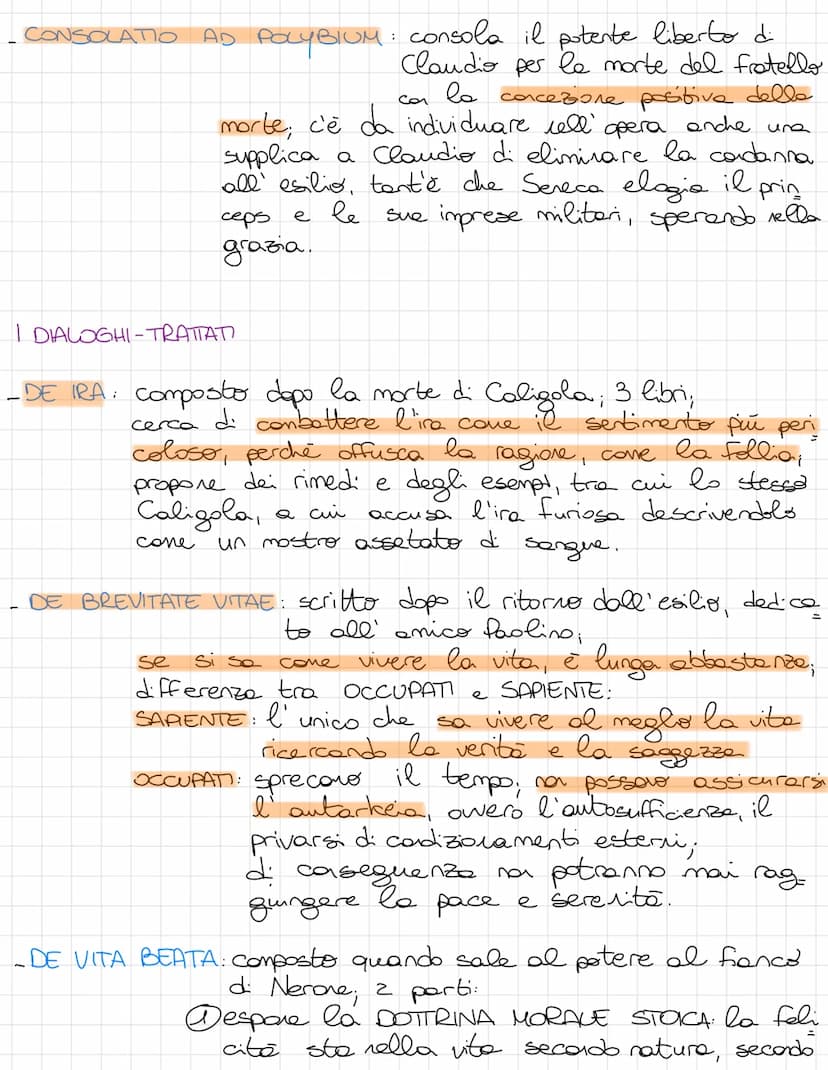 - CONSOLATIO AD POLYBIUM: consola il potente liberto di
Claudio per la morte del fratello
con la concezione positiva della
morte; c'è da individuare nell'opera anche una
supplica a Claudio di eliminare la condanna
all'esilio, tant'è che Seneca elogia il prin
ceps e le sue imprese militari, sperando nella
grazia.
I DIALOGHI-TRATTATI
- DE IRA: composto dopo la morte di Caligola; 3 libri;
cerca di combattere l'ira come il sentimento più peri
coloso, perché offusca la ragione, come la follia;
propone dei rimedi e degli esempi, tra cui lo stesso
Caligola, a cui accusa l'ira furiosa descrivendolo
come un mostro assetato di sangue.
- DE BREVITATE VITAE: scritto dopo il ritorno dall'esilio, dedica=
to all'amico Paolino;
se si sa come vivere la vita, è lunga abbastanza;
differenza tra OCCUPATI e SAPIENTE:
SAPIENTE: l'unico che sa vivere al meglio la vita
ricercando la verità e la saggezza
OCCUPATI: sprecano il tempo; non possono assicurarsi
l'autarkeia, ovvero l'autosufficienza, il
privarsi di condizionamenti esterni;
di conseguenza non potranno mai rag=
giungere la pace e serenità.
- DE VITA BEATA: composto quando sale al potere al fianco
di Nerone; 2 parti:
① espone la DOTTRINA MORALE STOICA: la feli
cità sta nella vita secondo natura, secondo